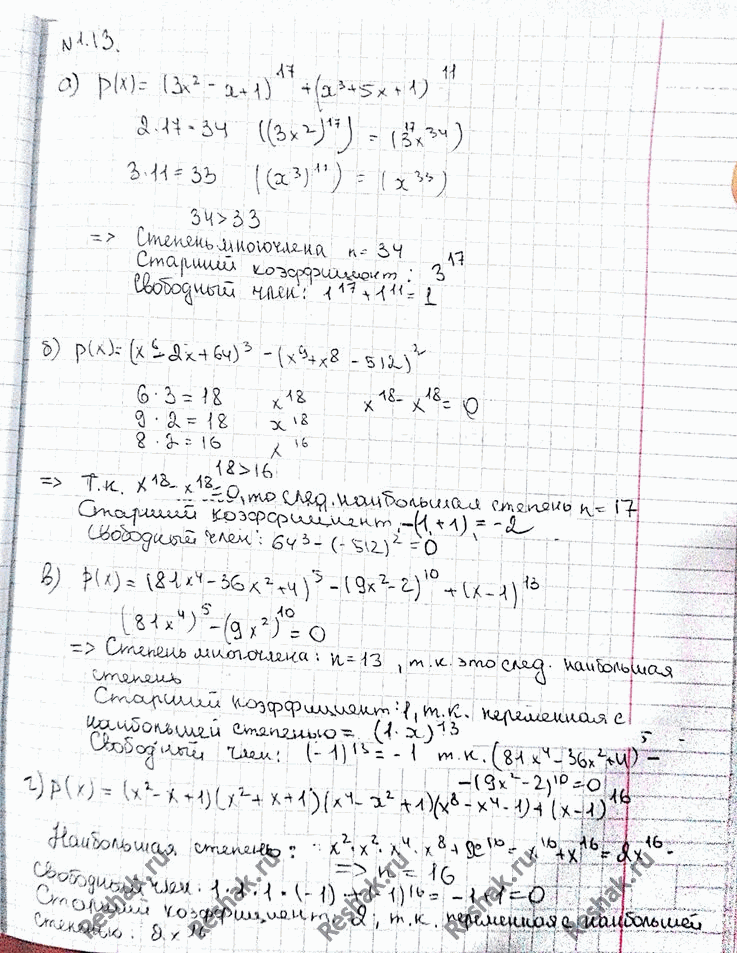 N1.13.
а) p(x) = (3x² - x + 1)¹⁷ + (x³ + 5x + 1)¹¹
2·17 = 34 ((3x²)¹⁷) = (3¹⁷x³⁴)
3·11 = 33 ((x³)¹¹) = (x³³)
34 > 33
=> Степень многочлена n = 34
Старший коэффициент: 3¹⁷
Свободный член: 1¹⁷ + 1¹¹ = 1
б) p(x) = (x⁶ - 2x + 64)³ - (x⁹ + x⁸ - 512)²
6·3 = 18 x¹⁸ x¹⁸ - x¹⁸ = 0
9·2 = 18 x¹⁸
8·2 = 16 x¹⁶
18 > 16
=> Т.к. x¹⁸ - x¹⁸ = 0, то след. наибольшая степень n = 17
Старший коэффициент -(1+1) = -2
Свободный член: 64³ - (-512)² = 0
в) p(x) = (81x⁴ - 36x² + 4)⁵ - (9x² - 2)¹⁰ + (x - 1)¹³
(81x⁴)⁵ - (9x²)¹⁰ = 0
=> Степень многочлена: n = 13, т.к. это след. наибольшая
степень
Старший коэффициент: 1, т.к. переменная с
наибольшей степенью = (1·x)¹³
Свободный член: (-1)¹³ = -1 т.к. (81x⁴ - 36x² + 4)⁵ -
- (9x² - 2)¹⁰ = 0
г) p(x) = (x² - x + 1)(x² + x + 1)(x⁴ - x² + 1)(x⁸ - x⁴ - 1) + (x - 1)¹⁶
Наибольшая степень: x²·x²·x⁴·x⁸ + x¹⁶ = x¹⁶ + x¹⁶ = 2x¹⁶
=> n = 16
Свободный член: 1·1·1·(-1) + (-1)¹⁶ = -1+1 = 0
Старший коэффициент 2, т.к. переменная с наибольшей
степенью: 2x¹⁶
Reshak.ru Reshak.ru Reshak.ru Reshak.ru Reshak.ru Reshak.ru